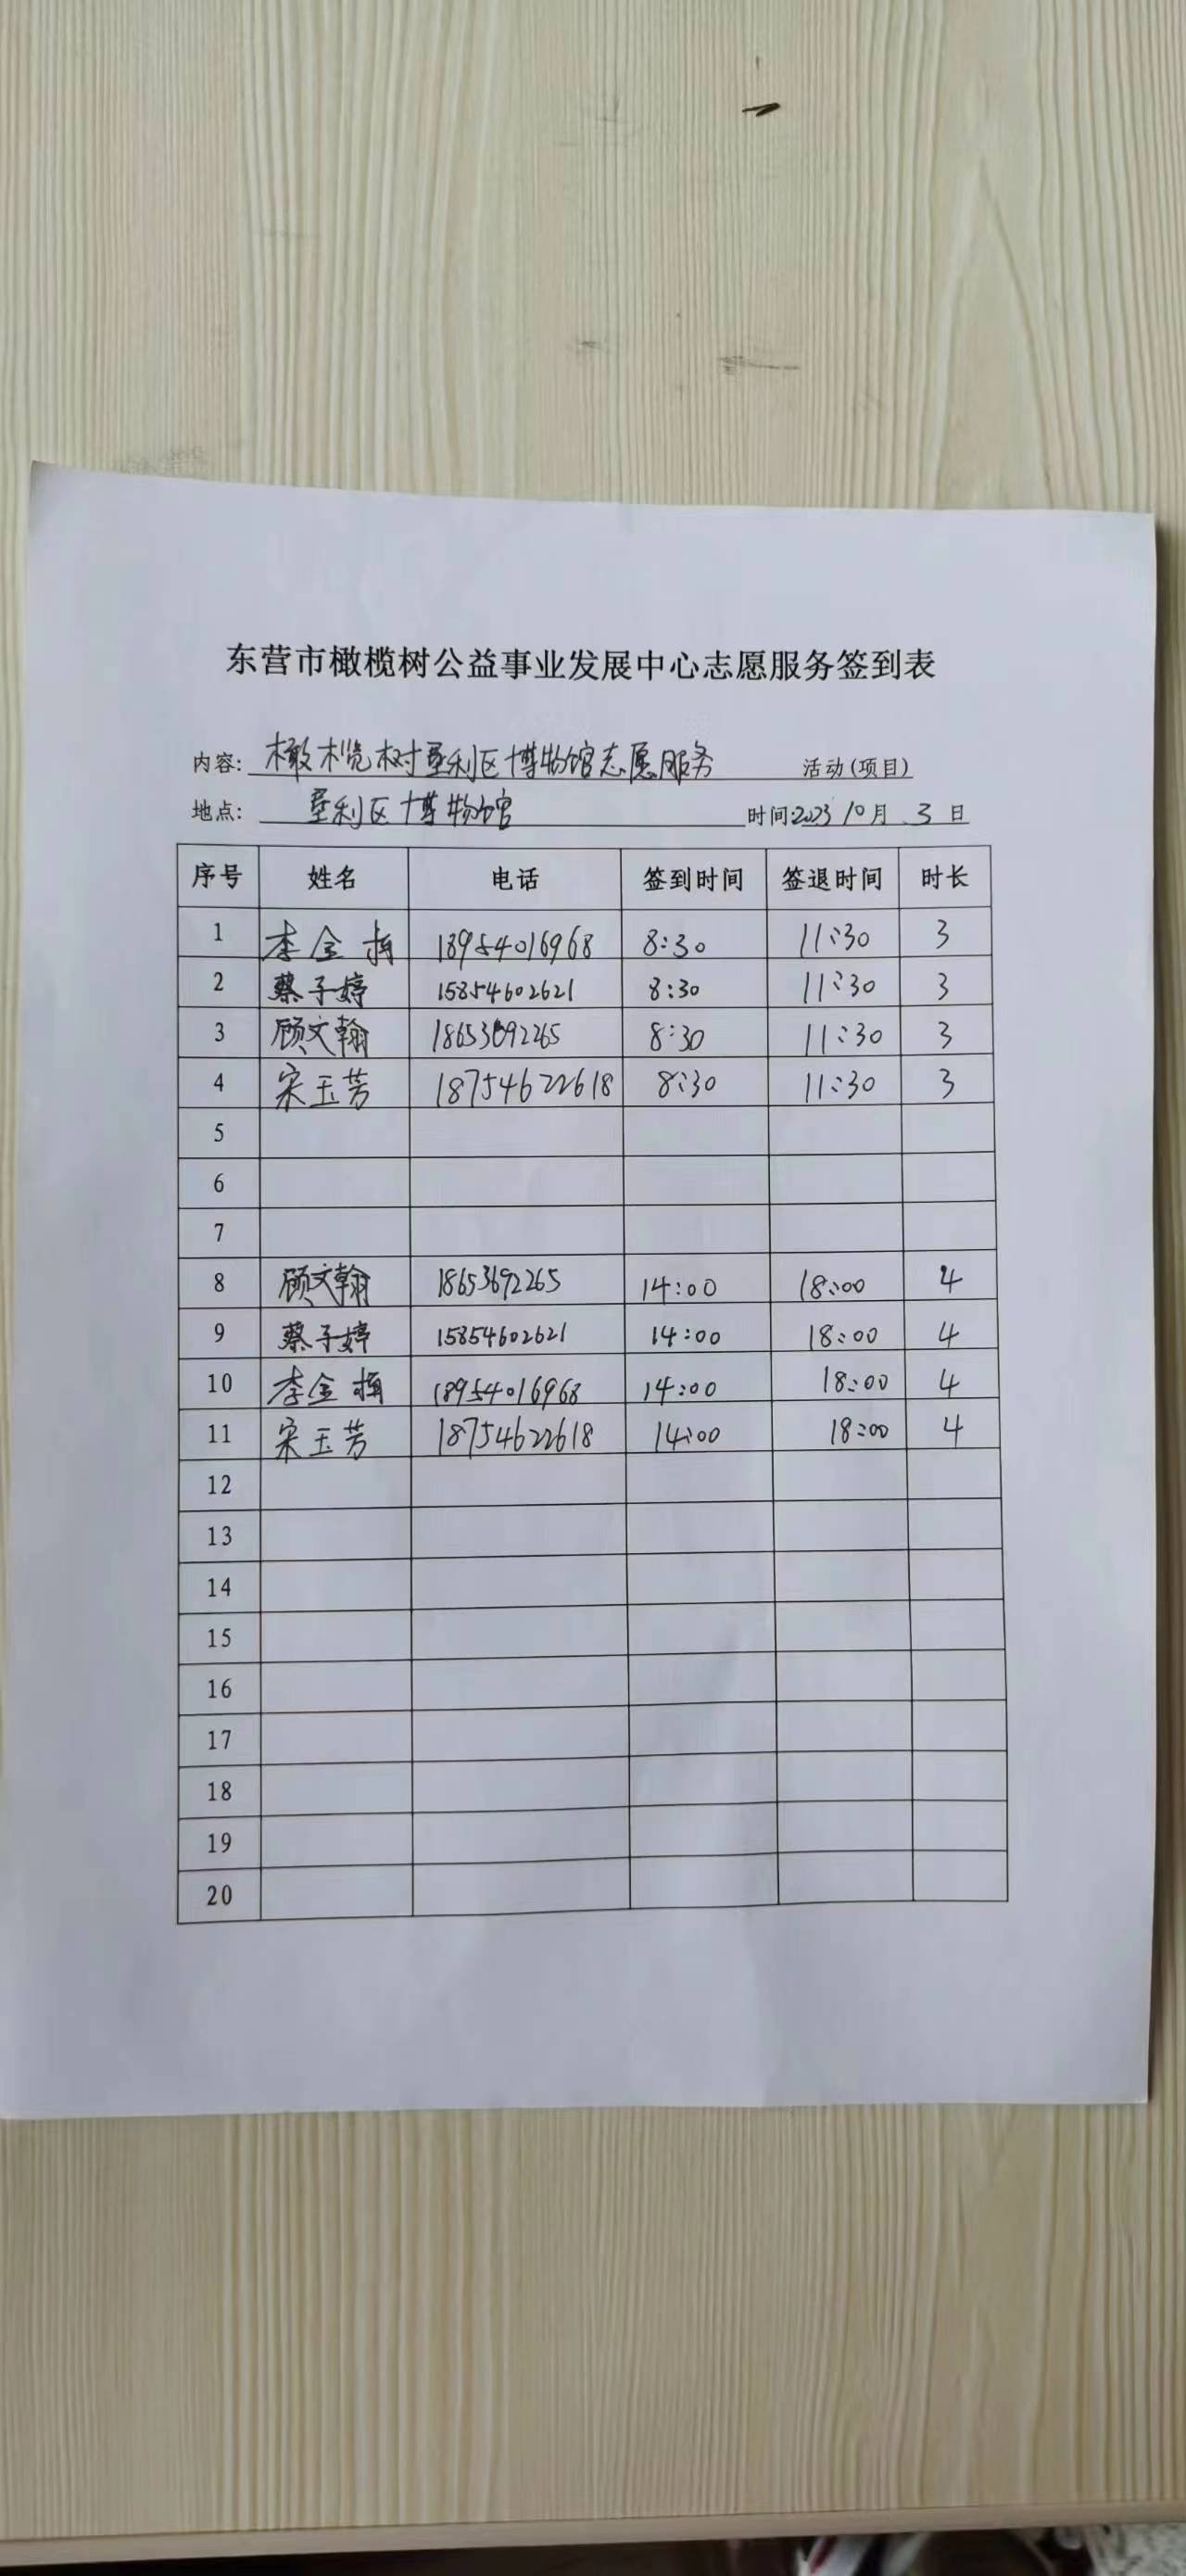 东营市橄榄树公益事业发展中心志愿服务签到表
内容: 橄榄树垦利区博物馆志愿服务 活动(项目)
地点: 垦利区博物馆 时间:2023 10月 3 日
序号 姓名 电话 签到时间 签退时间 时长
1 李金梅 18954016968 8:30 11:30 3
2 蔡子婷 15854602621 8:30 11:30 3
3 顾文翰 18653692265 8:30 11:30 3
4 宋玉芳 18754622618 8:30 11:30 3
5
6
7
8 顾文翰 18653692265 14:00 18:00 4
9 蔡子婷 15854602621 14:00 18:00 4
10 李金梅 18954016968 14:00 18:00 4
11 宋玉芳 18754622618 14:00 18:00 4
12
13
14
15
16
17
18
19
20